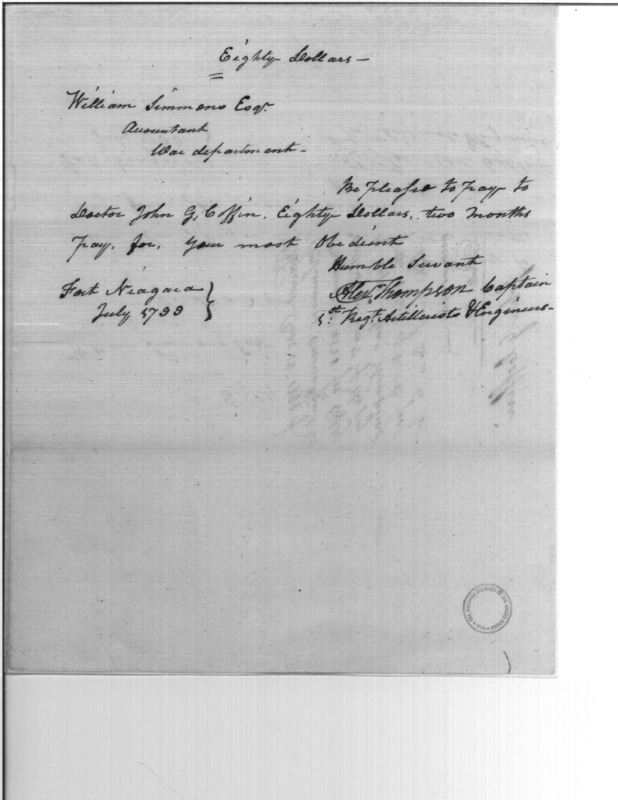 Eighty Dollars —
William Simmons Esqr.
Accountant
War department -
Be pleased to pay to
Doctor John G. Coffin, Eighty Dollars, two months
Pay, for, your most Obedient
Humble Servant
Fort Niagara
Alexr. Thompson Captain
July 1799
1st. Regt. Artillerists & Engineers -